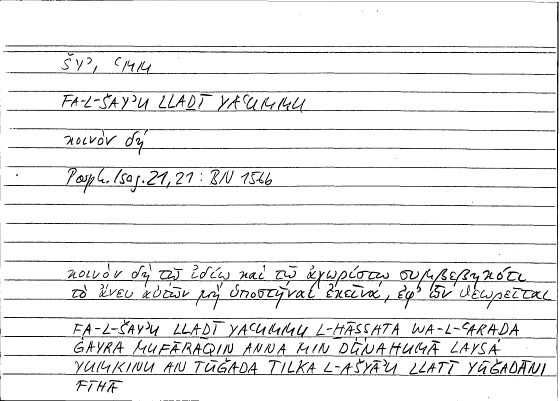 ŠYʾ, ʿMM
FA-L-ŠAYʾU LLAḎĪ YAʿUMMU
κοινὸν δή
Porph. Isag. 21, 21: BN 156b
κοινὸν δὴ τῷ ἰδίῳ καὶ τῷ ἀχωρίστῳ συμβεβηκότι
τὸ ἄνευ αὐτῶν μὴ ὑποστῆναι ἐκεῖνα, ἐφ' ὧν θεωρεῖται
FA-L-ŠAYʾU LLAḎĪ YAʿUMMU L-ḪĀṢṢATA WA-L-ʿARAḌA
ĠAYRA MUFĀRAQIN ANNA MIN DŪNAHUMĀ LAYSA
YUMKINU AN TŪǦADA TILKA L-AŠYĀʾU LLATĪ YŪǦADĀNI
FĪHĀ